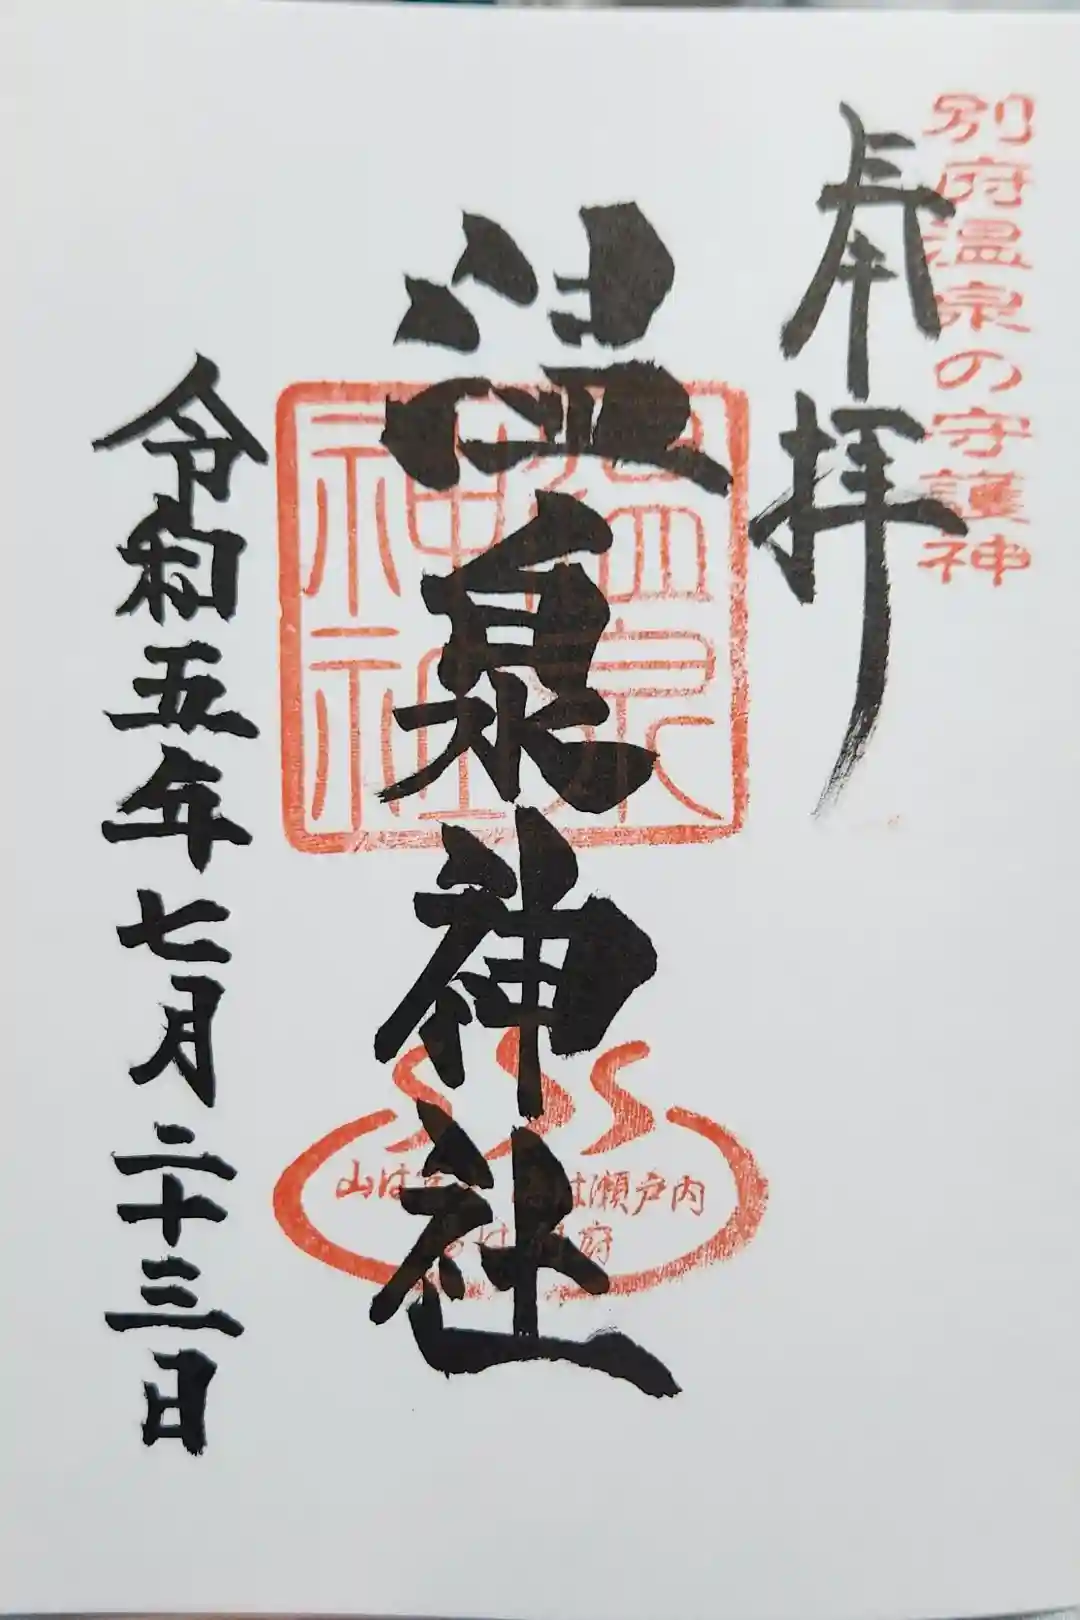 別府温泉の守護神
奉拝
温泉神社
温泉神社
山は は瀬戸内
は 府
令和五年七月二十三日